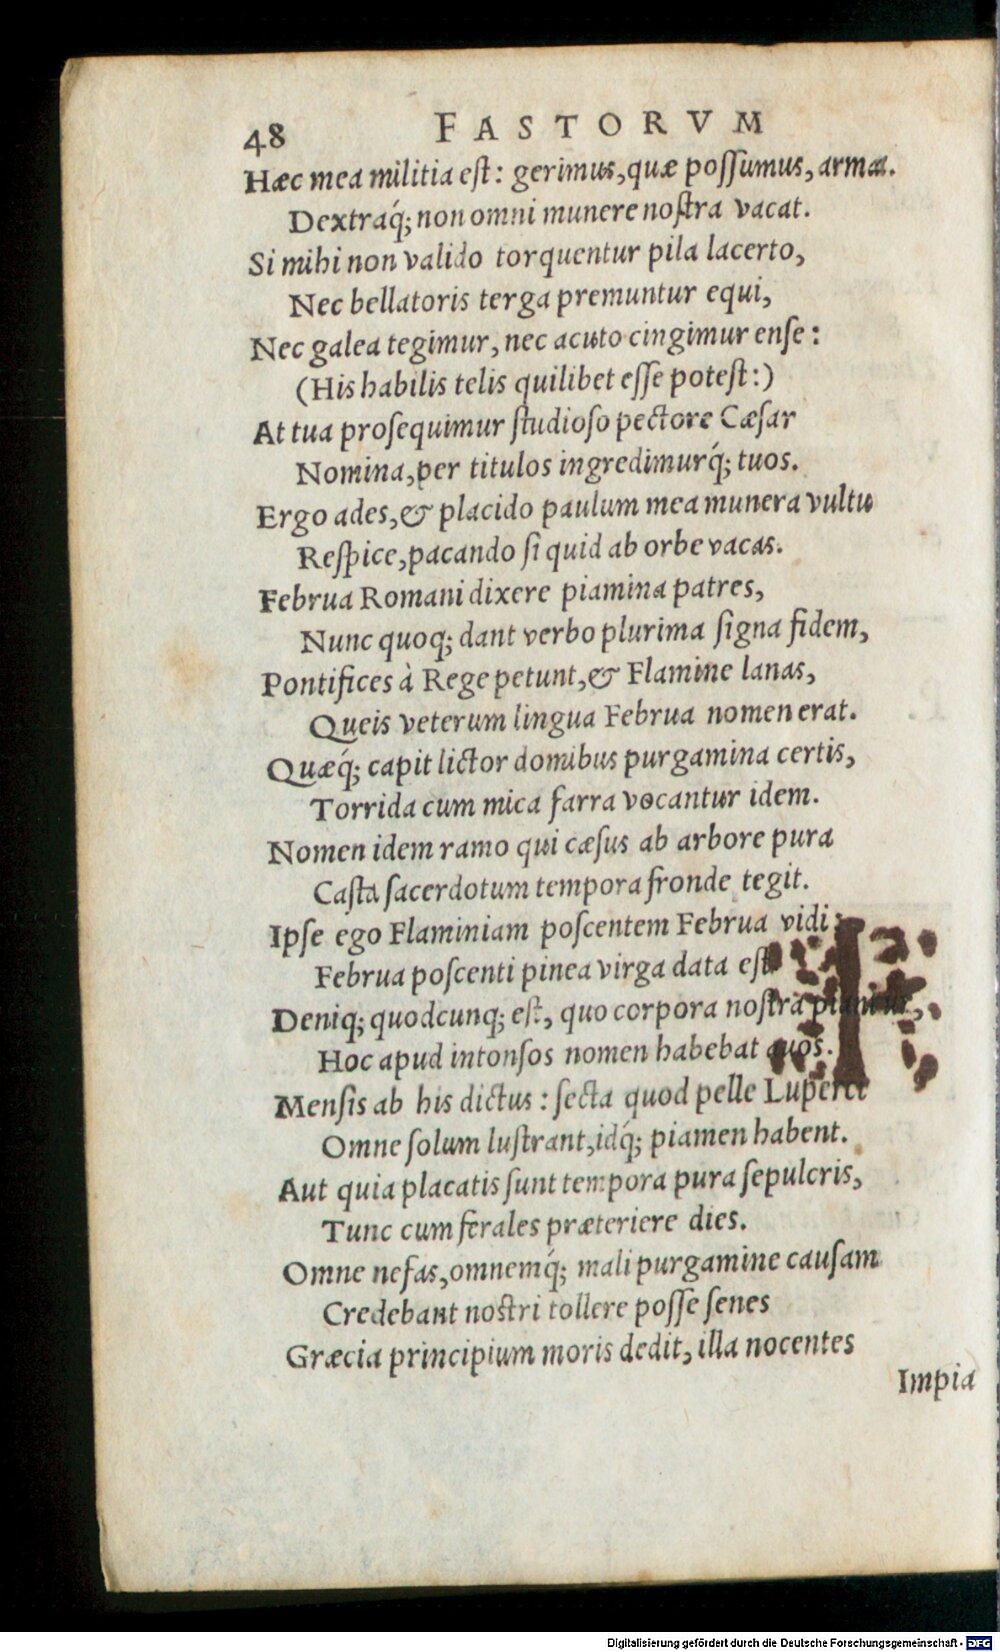 48 FASTORVM
Hæc mea militia est: gerimus, quæ possumus, arma.
Dextraq́; non omni munere nostra vacat.
Si mihi non valido torquentur pila lacerto,
Nec bellatoris terga premuntur equi,
Nec galea tegimur, nec acuto cingimur ense:
(His habilis telis quilibet esse potest:)
At tua prosequimur studioso pectore Cæsar
Nomina, per titulos ingredimurq́; tuos.
Ergo ades, & placido paulum mea munera vultu
Respice, pacando si quid ab orbe vacas.
Februa Romani dixere piamina patres,
Nunc quoq; dant verbo plurima signa fidem,
Pontifices à Rege petunt, & Flamine lanas,
Queis veterum lingua Februa nomen erat.
Quæq́; capit lictor domibus purgamina certis,
Torrida cum mica farra vocantur idem.
Nomen idem ramo qui cæsus ab arbore pura
Casta sacerdotum tempora fronde tegit.
Ipse ego Flaminiam poscentem Februa vidi:
Februa poscenti pinea virga data est
Deniq; quodcunq; est, quo corpora nostra piantur,
Hoc apud intonsos nomen habebat auos.
Mensis ab his dictus: secta quod pelle Luperci
Omne solum lustrant, idq́; piamen habent.
Aut quia placatis sunt tempora pura sepulcris,
Tunc cum ferales præteriere dies.
Omne nefas, omnemq́; mali purgamine causam
Credebant nostri tollere posse senes
Græcia principium moris dedit, illa nocentes
Impia
Digitalisierung gefördert durch die Deutsche Forschungsgemeinschaft - DFG